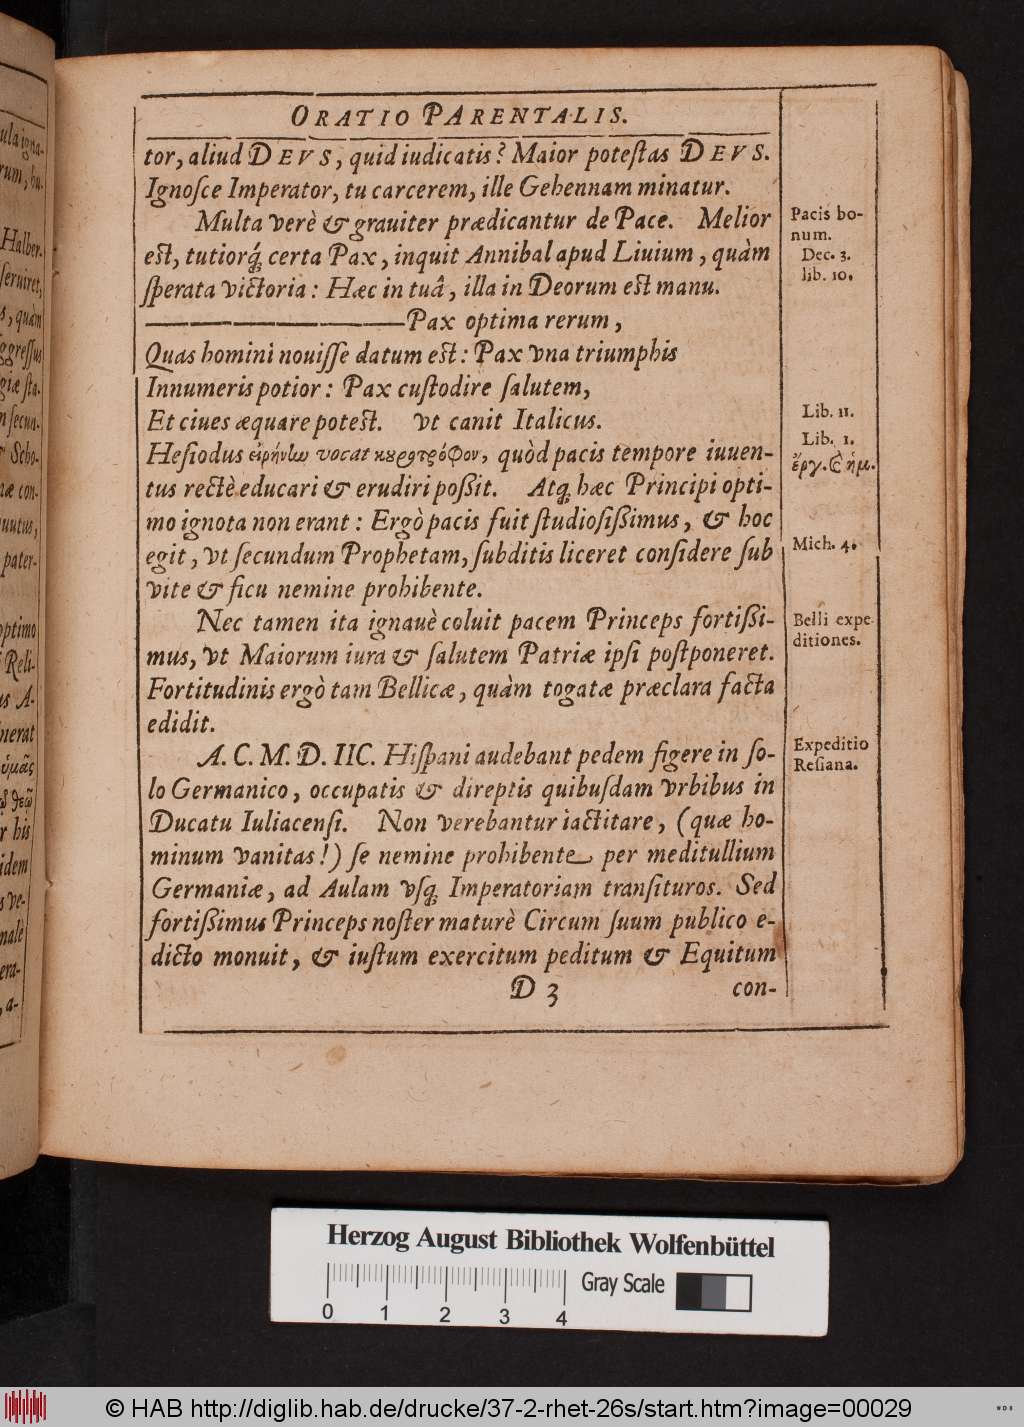 ORATIO PARENTALIS.
tor, aliud DEVS, quid iudicatis? Maior potestas DEVS.
Ignosce Imperator, tu carcerem, ille Gehennam minatur.
Multa verè & grauiter prædicantur de Pace. Melior
est, tutiorq́; certa Pax, inquit Annibal apud Liuium, quàm
sperata victoria: Hæc in tuâ, illa in Deorum est manu.
————————Pax optima rerum,
Quas homini nouisse datum est: Pax vna triumphis
Innumeris potior: Pax custodire salutem,
Et ciues æquare potest. vt canit Italicus.
Hesiodus εἰρήνην vocat κουροτρόφον, quòd pacis tempore iuuen-
tus rectè educari & erudiri poßit. Atq; hæc Principi opti-
mo ignota non erant: Ergò pacis fuit studiosißimus, & hoc
egit, vt secundum Prophetam, subditis liceret considere sub
vite & ficu nemine prohibente.
Nec tamen ita ignauè coluit pacem Princeps fortißi-
mus, vt Maiorum iura & salutem Patriæ ipsi postponeret.
Fortitudinis ergò tam Bellicæ, quàm togatæ præclara facta
edidit.
A. C. M. D. IIC. Hispani audebant pedem figere in so-
lo Germanico, occupatis & direptis quibusdam vrbibus in
Ducatu Iuliacensi. Non verebantur iactitare, (quæ ho-
minum vanitas!) se nemine prohibente per meditullium
Germaniæ, ad Aulam vsq; Imperatoriam transituros. Sed
fortißimus Princeps noster maturè Circum suum publico e-
dicto monuit, & iustum exercitum peditum & Equitum
D 3 con-
Pacis bo-
num.
Dec. 3.
lib. 10.
Lib. 11.
Lib. 1.
ἔργ. καὶ ἡμ.
Mich. 4.
Belli expe-
ditiones.
Expeditio
Resiana.
Halber-
seruiret,
s, quàm
ggressus
giæ sta-
n secun-
Scho-
ræ con-
uutus,
pater-
optimo
Reli-
us A-
nerat
ὑμᾶς
θεῷ
r his
idem
s ve-
nalè
era-
, a-
Herzog August Bibliothek Wolfenbüttel
Gray Scale
0 1 2 3 4
© HAB http://diglib.hab.de/drucke/37-2-rhet-26s/start.htm?image=00029